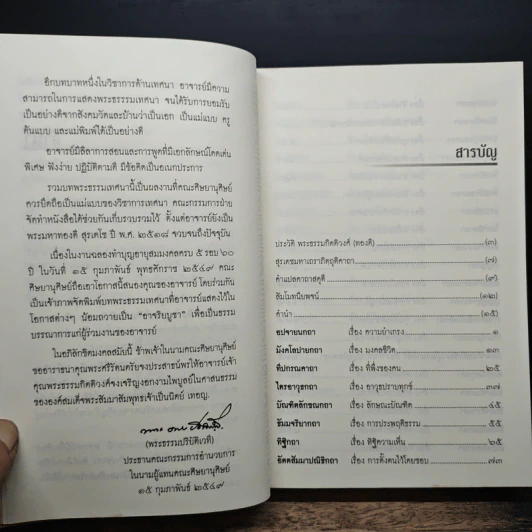 อีกบทบาทหนึ่งในวิชาการด้านเทศนา อาจารย์มีความ
สามารถในการแสดงพระธรรมเทศนา จนได้รับการยอมรับ
เป็นอย่างดีจากสังคมวัดและบ้านว่าเป็นเอก เป็นแม่แบบ ครู
ต้นแบบ และแม่พิมพ์ได้เป็นอย่างดี
อาจารย์มีลีลาการสอนและการพูดที่มีเอกลักษณ์โดดเด่น
พิเศษ ฟังง่าย ปฏิบัติตามดี มีข้อคิดเป็นอเนกประการ
รวมบทพระธรรมเทศนานี้เป็นผลงานที่คณะศิษยานุศิษย์
ควรยึดถือเป็นแม่แบบของวิชาการเทศนา คณะกรรมการฝ่าย
จัดทำหนังสือได้ช่วยกันเก็บรวบรวมไว้ ตั้งแต่อาจารย์ยังเป็น
พระมหาทองดี สุรเตโช ปี พ.ศ. ๒๕๑๘ จวบจนถึงปัจจุบัน
เนื่องในงานฉลองทำบุญอายุสมมงคลครบ ๕ รอบ ๖๐
ปี ในวันที่ ๑๕ กุมภาพันธ์ พุทธศักราช ๒๕๔๙ คณะ
ศิษยานุศิษย์ถือเอาโอกาสนี้สนองคุณของอาจารย์ โดยร่วมกัน
เป็นเจ้าภาพจัดพิมพ์บทพระธรรมเทศนาที่อาจารย์แสดงไว้ใน
โอกาสต่างๆ น้อมถวายเป็น "อาจริยบูชา" เพื่อเป็นธรรม
บรรณาการแก่ผู้ร่วมงานของอาจารย์
ในอภิลักขิตมงคลสมัยนี้ ข้าพเจ้าในนามคณะศิษยานุศิษย์
ขออาราธนาคุณพระศรีรัตนตรัยจงประสาธน์พรให้อาจารย์เจ้า
คุณพระธรรมกิตติวงศ์จงเจริญงอกงามไพบูลย์ในศาสนธรรม
ขององค์สมเด็จพระสัมมาสัมพุทธเจ้าเป็นนิตย์ เทอญ.
(พระธรรมปริยัติเวที)
ประธานคณะกรรมการอำนวยการ
ในนามผู้แทนคณะศิษยานุศิษย์
๑๕ กุมภาพันธ์ ๒๕๔๙
สารบัญ
ประวัติ พระธรรมกิตติวงศ์ (ทองดี) (๓)
สุรเตชมหาเถราภิตถุติคาถา (๗)
คำแปลคาถาสดุดี (๙)
สัมโมทนียพจน์ (๑๒)
คำนำ (๑๕)
อปจายนกถา เรื่อง ความยำเกรง ๑
มังคโลปายกถา เรื่อง มงคลชีวิต ๑๓
ทีปกรณคาถา เรื่อง ที่พึ่งของคน ๒๕
ไตรอาวุธกถา เรื่อง อาวุธปราบทุกข์ ๓๗
บัณฑิตลักขณกถา เรื่อง ลักษณะบัณฑิต ๔๕
ธัมมจริยากถา เรื่อง การประพฤติธรรม ๕๕
ทิฐิกถา เรื่อง ทิฐิความเห็น ๖๕
อัตตสัมมาปณิธิกถา เรื่อง การตั้งตนไว้โดยชอบ ๗๓